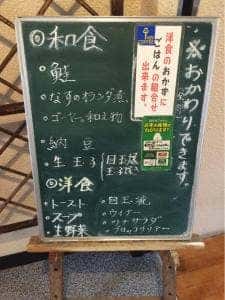 ◎和食
※おかわりできます。
洋食のおかずに
ごはんの組合せ
出来ます。
・鮭
・なすのオランダ煮
・ゴーヤの和え物
・納豆
・生玉子
目玉焼
玉子焼
◎洋食
・トースト
・スープ
・生野菜
・目玉焼
・ウインナー
・ツナサラダ
・ブロッコリー